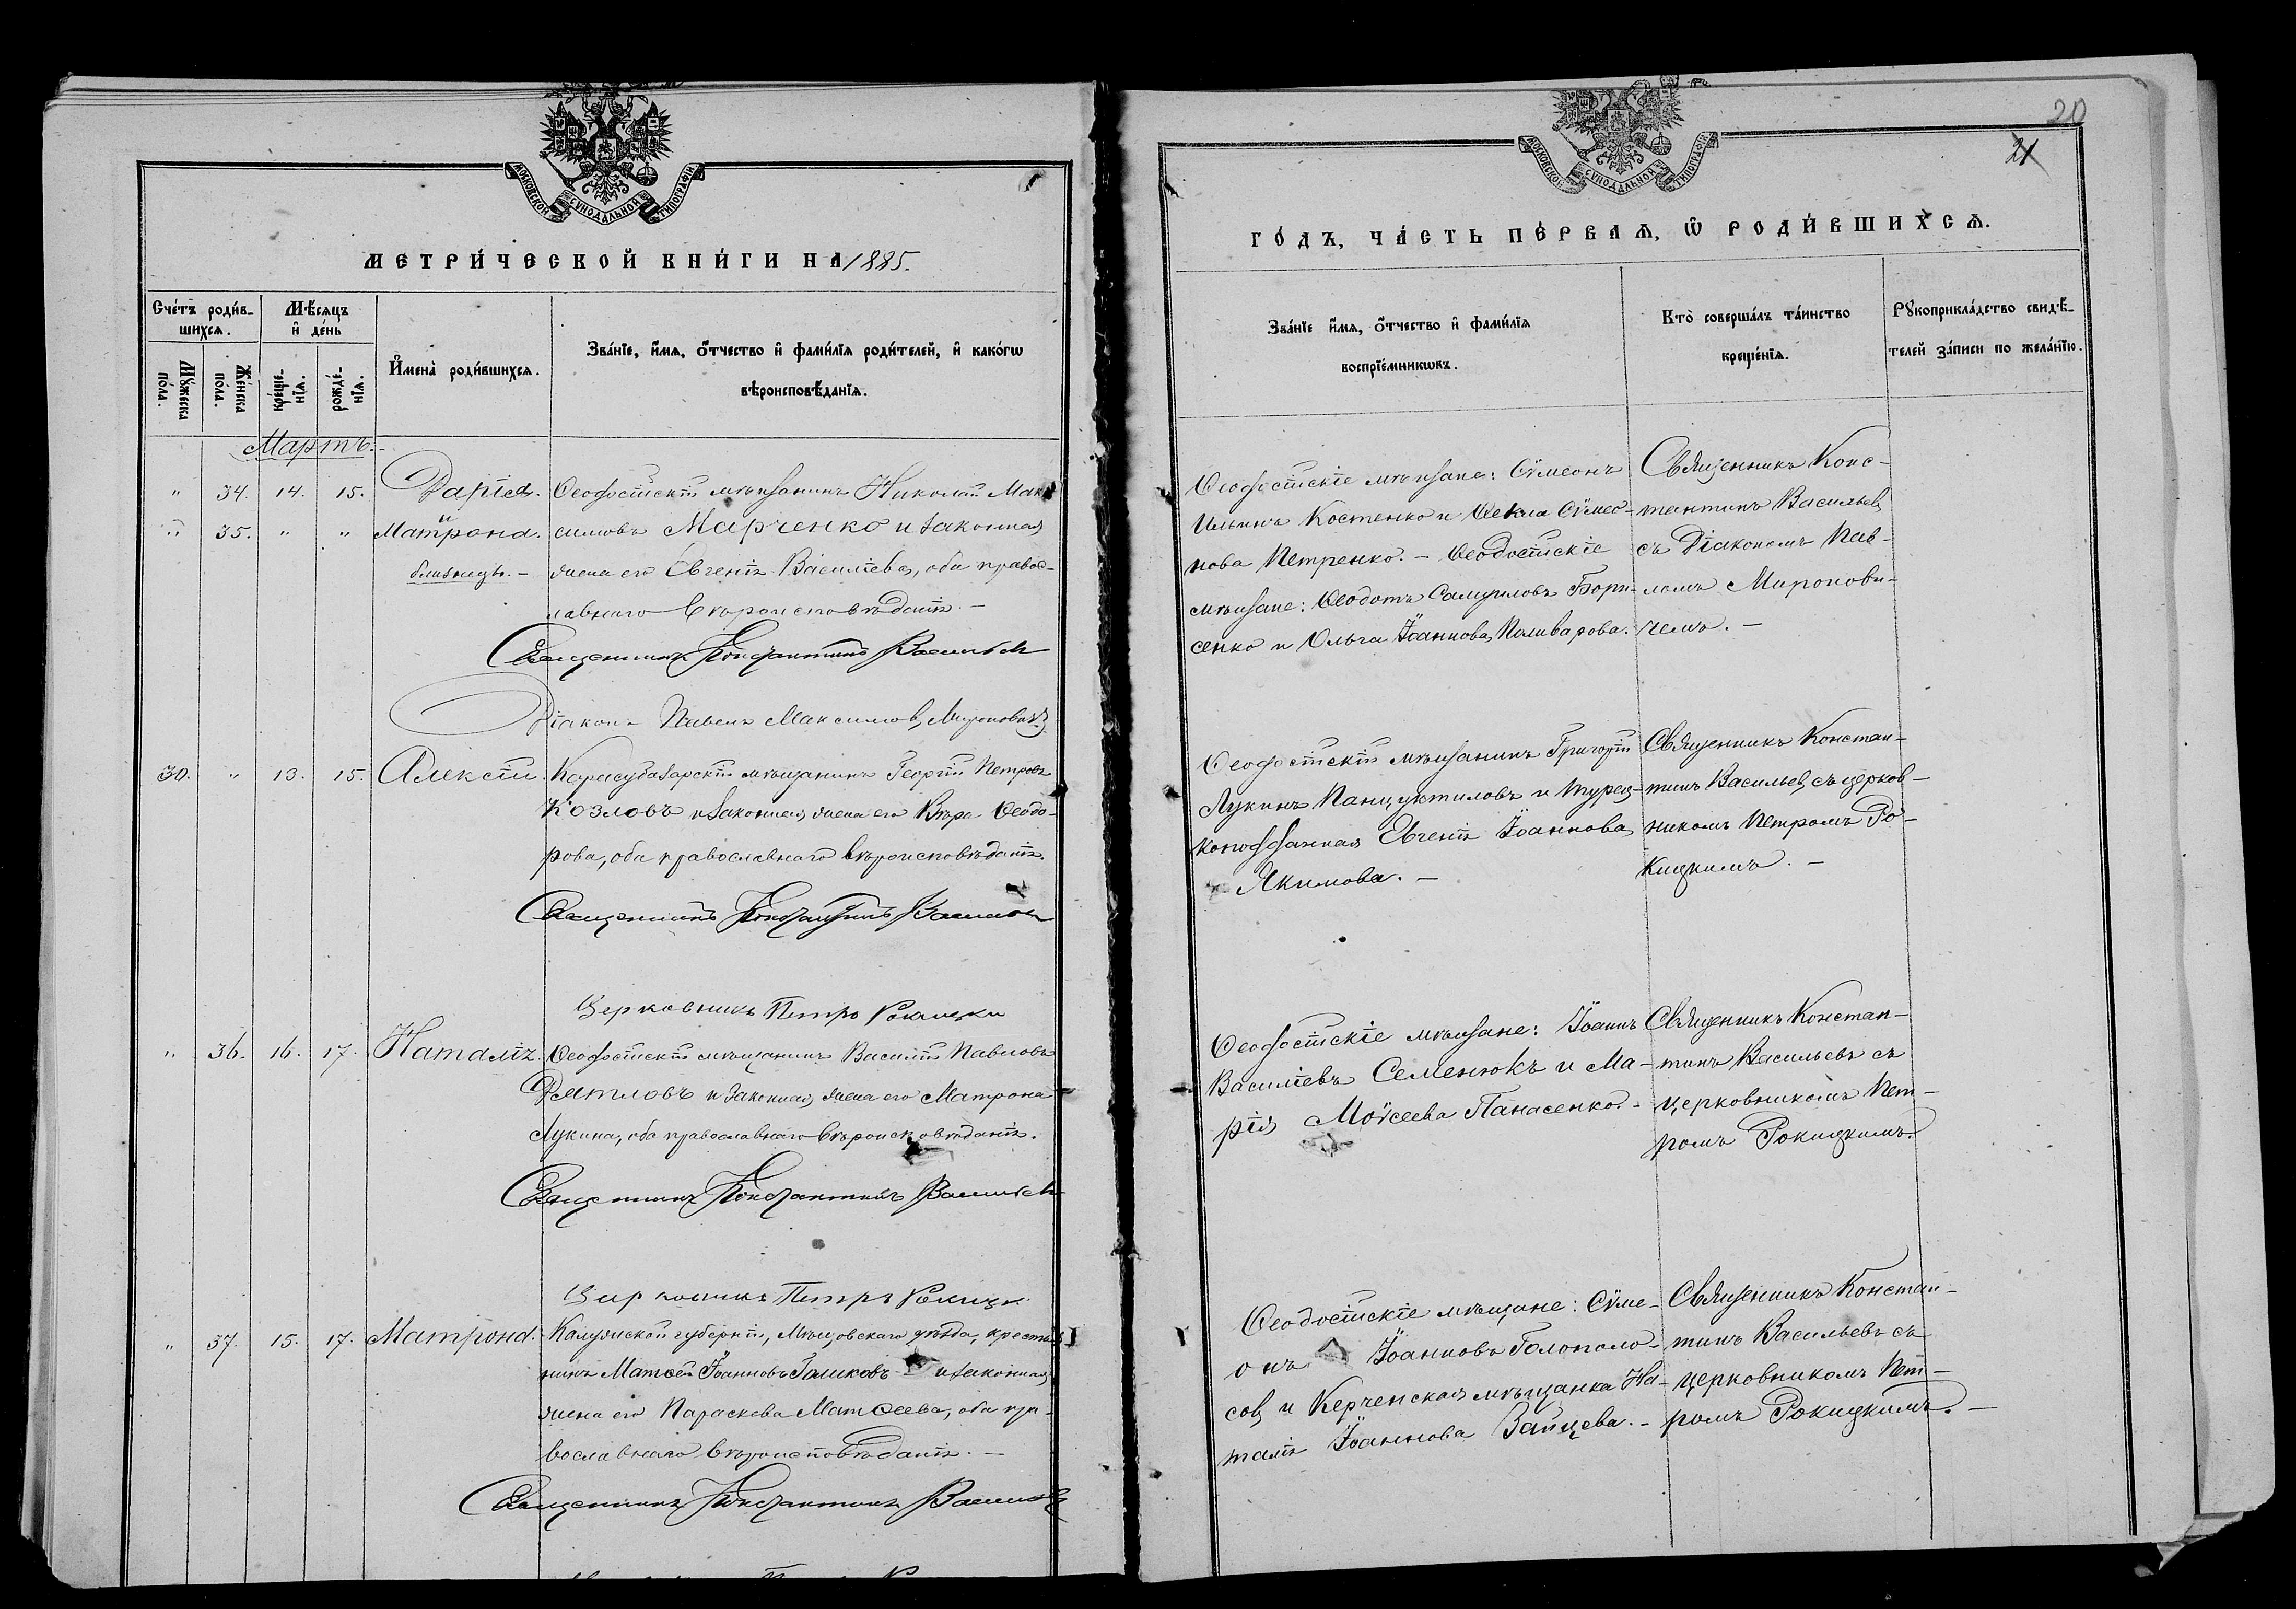 МОСКОВСКОЙ СѴНОДАЛЬНОЙ ТИПОГРАФІИ
МЕТРИ́ЧЕСКОЙ КНИ́ГИ НА 1885.
Сче́тъ роди́в-
шихсѧ.
Мѣ́сѧцъ
и҆ де́нь
Мꙋ́жеска
по́ла.
Же́нска
по́ла.
креще́-
нїѧ.
рожде́-
нїѧ.
И҆мена̀ роди́вшихсѧ.
Зва́нїе, и҆́мѧ, ѻ҆́тчество и҆ фами́лїѧ роди́телей, и҆ како́гѡ
вѣроисповѣ́данїѧ.
Мартъ.
" 34. 14. 15. Дарія. Ѳеодосійскій мѣщанинъ Николай Мак
и
" 35. " " Матрона. симовъ Марченко и законная
близнецы. – жена его Евгенія Василіева, оба правос-
лавнаго вѣроисповѣданія. –
Священникъ Константинъ Васильевъ
Діаконъ Павелъ Максимовъ Мироновичъ
30. " 13. 15. Алексій. Карасубазарскій мѣщанинъ Георгій Петровъ
Козловъ и законная жена его Вѣра Ѳеодо-
рова, оба православнаго вѣроисповѣданія.
Священникъ Константинъ Васильевъ
Церковникъ Петръ Рокицкій
" 36. 16. 17. Наталія. Ѳеодосійскій мѣщанинъ Василій Павловъ
Дятловъ и законная жена его Матрона
Лукина, оба православнаго вѣроисповѣданія.
Священникъ Константинъ Васильевъ
Церковникъ Петръ Рокицкій
" 37. 15. 17. Матрона. Калужской губерніи, Мѣщовскаго уѣзда, крестья
нинъ Матѳей Іоанновъ Голиковъ и законная
жена его Параскева Матѳеева, оба пра-
вославнаго вѣроисповѣданія. –
Священникъ Константинъ Васильевъ
20
21
МОСКОВСКОЙ СѴНОДАЛЬНОЙ ТИПОГРАФІИ
ГО́ДЪ, ЧА́СТЬ ПЕ́РВАѦ, Ѡ҆ РОДИ́ВШИХСѦ.
Зва́нїе и҆́мѧ, ѻ҆́тчество и҆ фами́лїѧ
воспрїе́мникѡвъ.
Кто̀ соверша́лъ та́инство
креще́нїѧ.
Рꙋкоприкла́дство свидѣ́-
телей за́писи по жела́нїю.
Ѳеодосійскіе мѣщане: Сѵмеонъ
Ильинъ Костенко и Ѳекла Сѵмео-
нова Петренко. – Ѳеодосійскіе
мѣщане: Ѳеодотъ Самуиловъ Бори-
сенко и Ольга Іоаннова Поливарова.
Священникъ Конс-
тантинъ Васильевъ
съ Діакономъ Пав-
ломъ Миронови-
чемъ. –
Ѳеодосійскій мѣщанинъ Григорій
Лукинъ и Турец-
коподданная Евгенія Іоаннова
Якимова. –
Священникъ Констан-
тинъ Васильевъ съ церков-
никомъ Петромъ Ро-
кицкимъ. –
Ѳеодосійскіе мѣщане: Іоаннъ
Василіевъ Семенюкъ и Ма-
рія Моѵсеева Панасенко. –
Священникъ Констан-
тинъ Васильевъ съ
церковникомъ Пет-
ромъ Рокицкимъ.
Ѳеодосійскіе мѣщане: Сѵме-
онъ Іоанновъ Голополо-
совъ и Керченская мѣщанка На-
талія Іоаннова Зайцева. –
Священникъ Констан-
тинъ Васильевъ съ
церковникомъ Пет-
ромъ Рокицкимъ. –